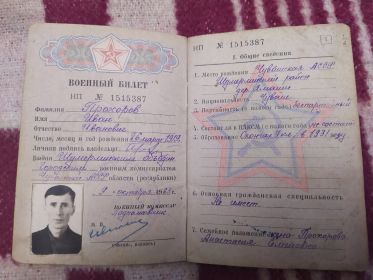 ВОЕННЫЙ БИЛЕТ
НП № 1515387
Фамилия Прохоров
Имя Иван
Отчество Иванович
Число, месяц и год рождения
Личная подпись владельца
Выдан Шумерлинским
военным комиссариатом
области (республики)
9 октября 1963 г.
ВОЕННЫЙ КОМИССАР
М. П.
(звание, подпись)
НП № 1515387
1
I. Общие сведения
1. Место рождения Чувашская АССР
Шумерлинский район
дер.
2. Национальность Чуваш
3. Партийность (с какого года) беспартийный
4. Состоит ли в ВЛКСМ (с какого года) не состоит
5. в 1931 году
6. Основная гражданская специальность
Не имеет
7. Семейное положение жена Прохорова
Анастасия